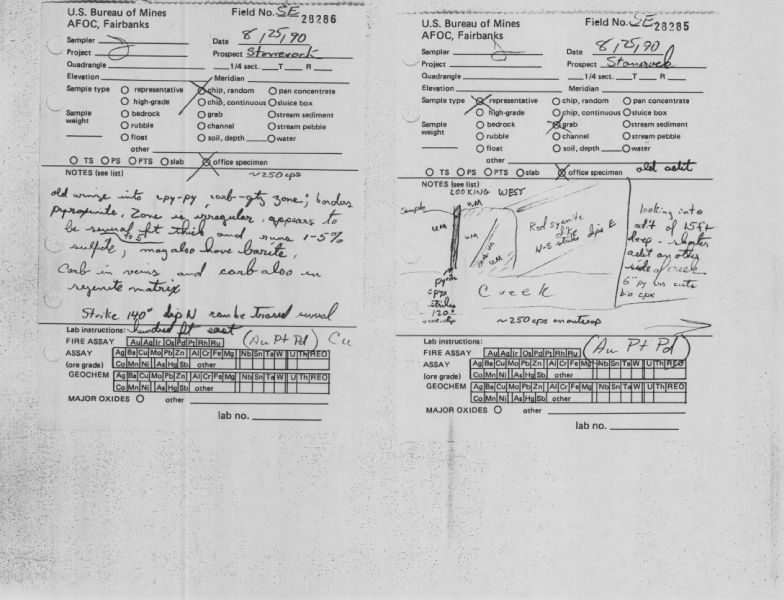 U.S. Bureau of Mines
AFOC, Fairbanks
Field No. SE 28286
Sampler
Date 8/25/90
Project
Prospect Stonerock
Quadrangle 1/4 sect. T R
Elevation Meridian
Sample type representative chip, random pan concentrate
high-grade chip, continuous sluice box
Sample weight bedrock grab stream sediment
rubble channel stream pebble
float soil, depth water
other
TS PS PTS slab office specimen
NOTES (see list) ~250 cps
old winze into cpy-py, carb-qtz zone; borders
pyroxenite. Zone is irregular, appears to
be several ft thick and runs 1-5%
sulfide, may also have barite,
Carb in veins and carb also in
matrix
Strike 140° dip N can be traced several
hundred fit east
Lab instructions: (Au Pt Pd) Cu
FIRE ASSAY Au Ag Ir Os Pd Pt Rh Ru
ASSAY Ag Ba Cu Mo Pb Zn Al Cr Fe Mg Nb Sn Ta W U Th REO
(ore grade) Co Mn Ni As Hg Sb other
GEOCHEM Ag Ba Cu Mo Pb Zn Al Cr Fe Mg Nb Sn Ta W U Th REO
Co Mn Ni As Hg Sb other
MAJOR OXIDES other
lab no.
U.S. Bureau of Mines
AFOC, Fairbanks
Field No. SE 28285
Sampler
Date 8/25/90
Project
Prospect Stonerock
Quadrangle 1/4 sect. T R
Elevation Meridian
Sample type representative chip, random pan concentrate
high-grade chip, continuous sluice box
Sample weight bedrock grab stream sediment
rubble channel stream pebble
float soil, depth water
other
TS PS PTS slab office specimen old adit
NOTES (see list)
LOOKING WEST
Sample
UM
UM
UM
UM
Red syenite
dike
N-S strike dips E
looking into
adit of 15 ft
deep - shorter
adit on other
side of creek
6" py in cuts
bio cpx
pyrite
cpy
strikes
120°
Creek
~250 cps on outcrop
Lab instructions: (Au Pt Pd)
FIRE ASSAY Au Ag Ir Os Pd Pt Rh Ru
ASSAY Ag Ba Cu Mo Pb Zn Al Cr Fe Mg Nb Sn Ta W U Th REO
(ore grade) Co Mn Ni As Hg Sb other
GEOCHEM Ag Ba Cu Mo Pb Zn Al Cr Fe Mg Nb Sn Ta W U Th REO
Co Mn Ni As Hg Sb other
MAJOR OXIDES other
lab no.